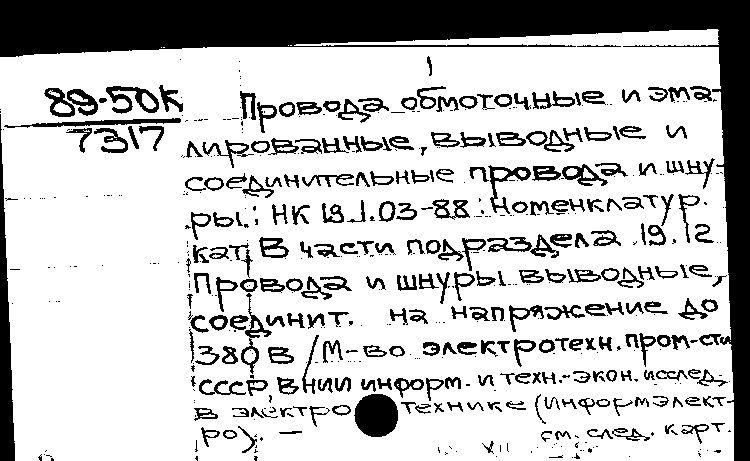 1
89-50К
7317
Провода обмоточные и эма-
лированные, выводные и
соединительные провода и шну-
ры.: НК 19.1.03-88: Номенклатур.
кат. В части подраздела 19.12
Провода и шнуры выводные,
соединит. на напряжение до
380 В / М-во электротехн. пром-сти
СССР, ВНИИ информ. и техн.-экон. исслед.
в электротехнике (Информэлект-
ро). —
см. след. карт.